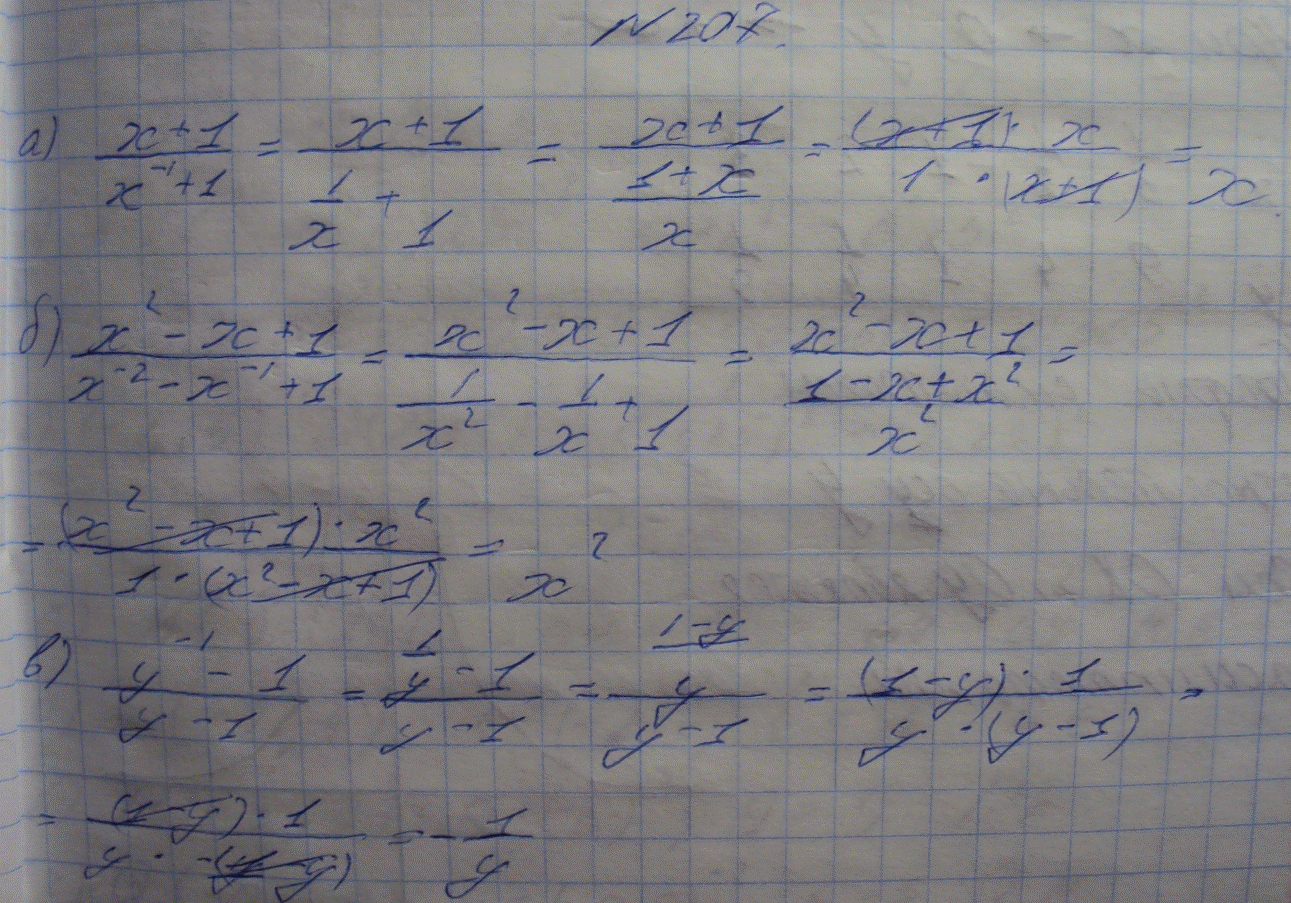 N 207.
а) \frac{x+1}{x^{-1}+1} = \frac{x+1}{\frac{1}{x}+1} = \frac{x+1}{\frac{1+x}{x}} = \frac{(x+1)·x}{1·(x+1)} = x.
б) \frac{x^2-x+1}{x^{-2}-x^{-1}+1} = \frac{x^2-x+1}{\frac{1}{x^2}-\frac{1}{x}+1} = \frac{x^2-x+1}{\frac{1-x+x^2}{x^2}} =
= \frac{(x^2-x+1)·x^2}{1·(x^2-x+1)} = x^2
в) \frac{y^{-1}-1}{y-1} = \frac{\frac{1}{y}-1}{y-1} = \frac{\frac{1-y}{y}}{y-1} = \frac{(1-y)·1}{y·(y-1)} =
= \frac{(1-y)·1}{y·-(1-y)} = -\frac{1}{y}